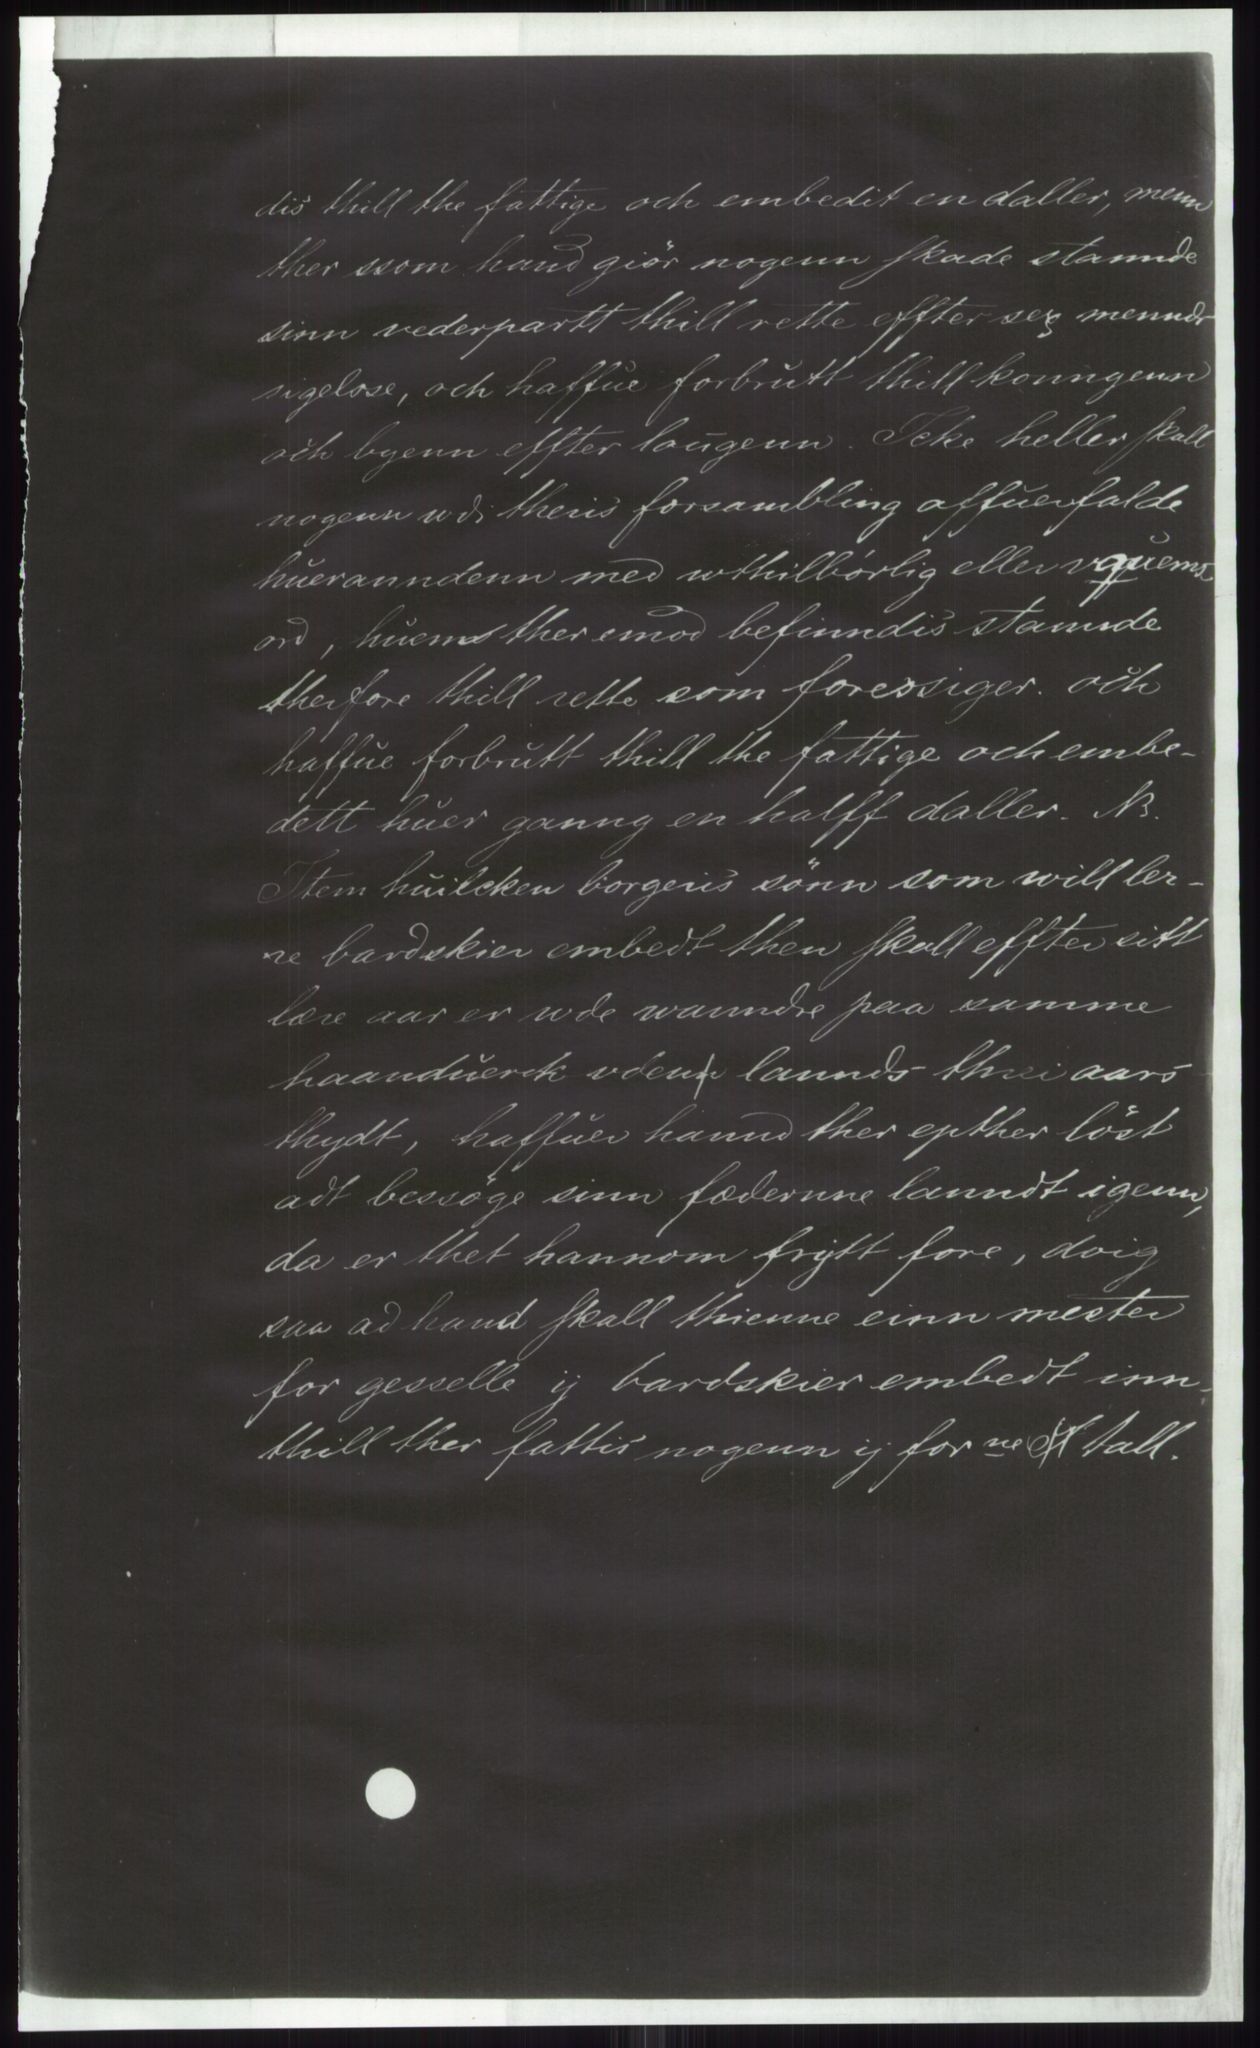 dis thill the fattige och embedit en daller, menn
ther ssom hand giör nogenn skade stannde
sinn vederpartt thill rette effter sex mennds
sigelose, och haffue forbrutt thill konngenn
och byenn effter laugenn. Icke heller skall
nogenn udi theris forsambling affuerfalde
hueranndenn med uthilbørlig eller vquems
ord, huem ther emod befinndis stannde
therfore thill rette som foresiger. och
haffue forbrutt thill the fattige och embe-
dett huer ganng en halff daller. N3.
Item huilcken borgeris sönn som will ler-
ne bardskier embedt then skall effter sitt
lære aar er ude wanndre paa samme
haanduerck vden lannds threi aars
thydt, haffuer hannd ther epther löst
adt bessöge sinn fædernne lanndt igenn,
da er thet hannom frytt fore, doig
saa ad hand skall thienne einn mester
for gesselle ij bardskier embedt inn-
thill ther fattis nogenn ij for ne tall.